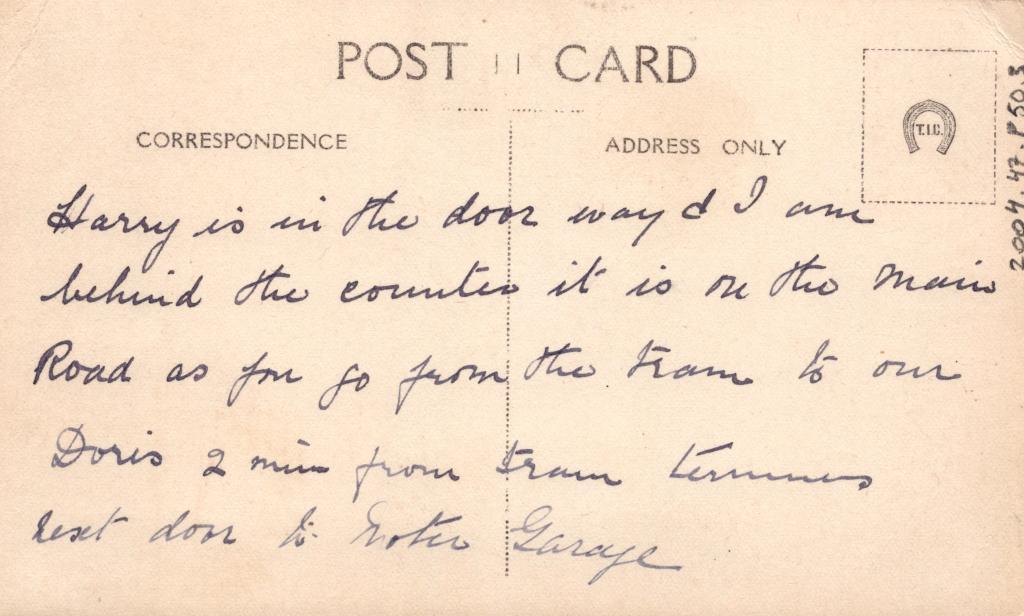 POST CARD
CORRESPONDENCE
ADDRESS ONLY
T.I.C.
2004.47.P50.3
Harry is in the door way & I am
behind the counter it is on the main
Road as you go from the tram to our
Doris 2 min from tram terminus
next door to Motor Garage